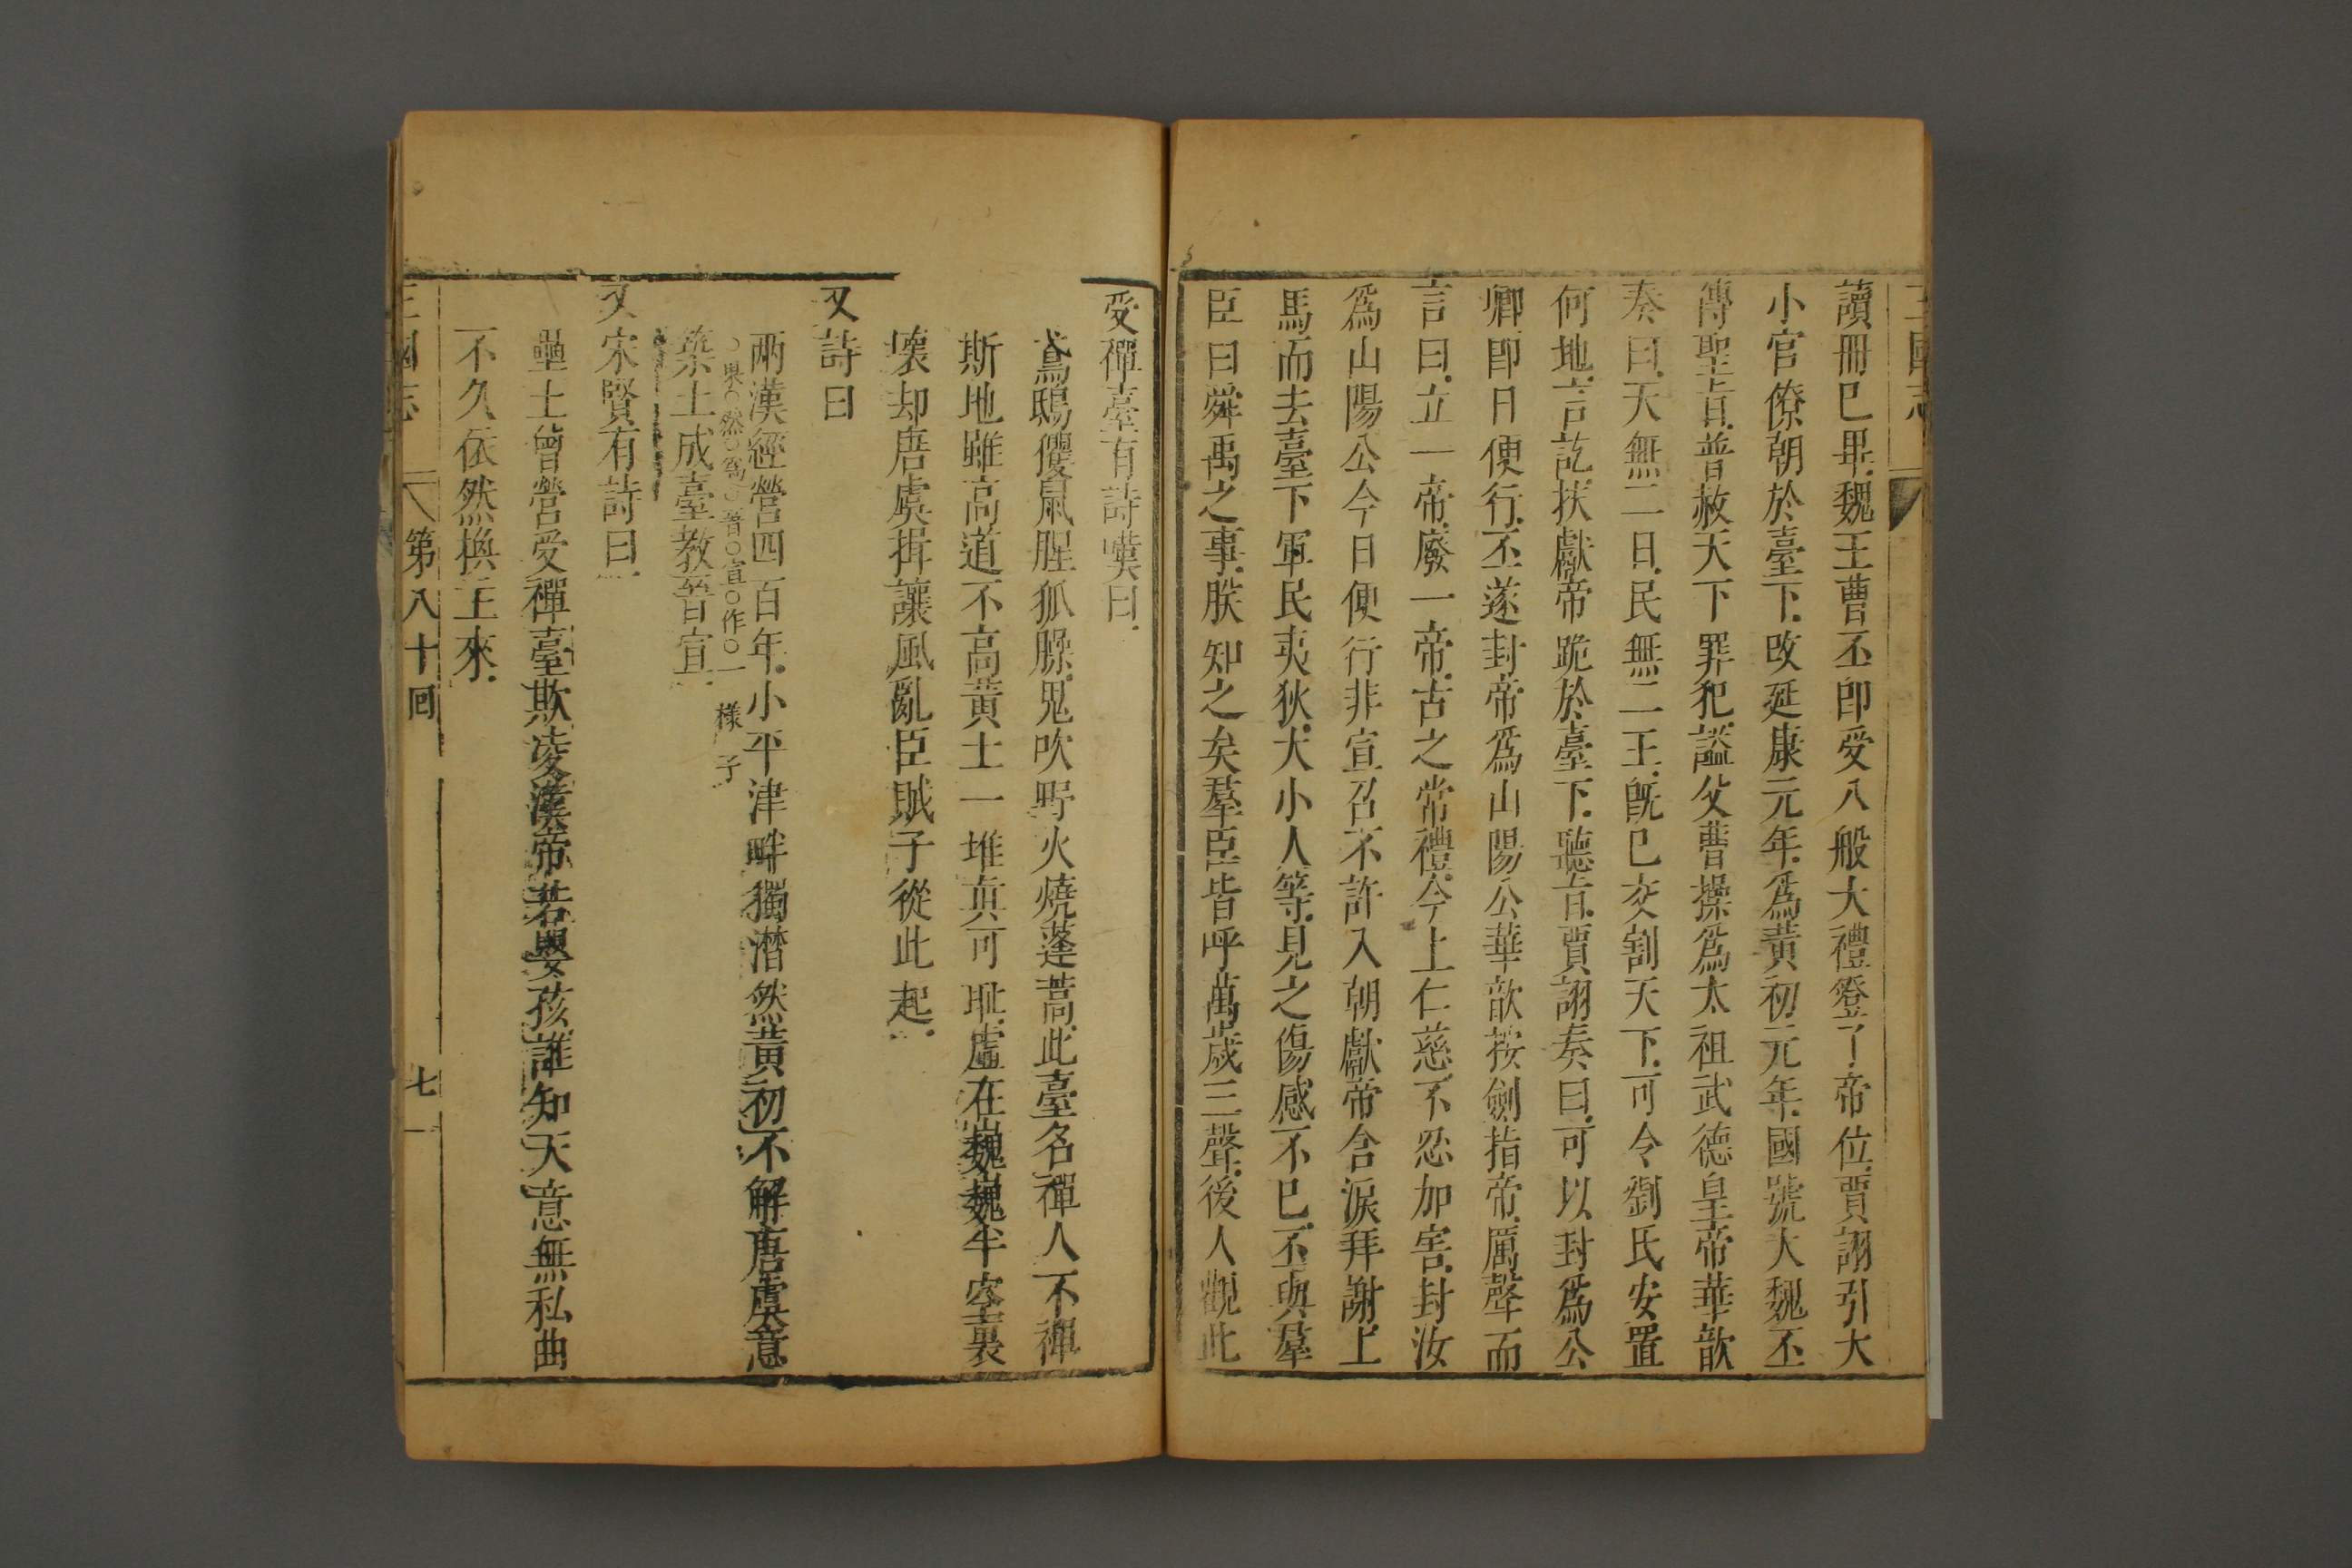 三國志
讀冊已畢魏王曹丕卽受八般大禮登了帝位賈詡引大
小官僚朝於臺下改延康元年爲黃初元年國號大魏丕
傳聖旨普赦天下罪犯諡父曹操爲太祖武德皇帝華歆
奏曰天無二日民無二王旣已交割天下可令劉氏安置
何地言訖扶獻帝跪於臺下聽旨賈詡奏曰可以封爲公
卿卽日便行丕遂封帝爲山陽公華歆按劍指帝厲聲而
言曰立一帝廢一帝古之常禮今上仁慈不忍加害封汝
爲山陽公今日便行非宣召不許入朝獻帝含淚拜謝上
馬而去臺下軍民夷狄大小人等見之傷感不已丕與羣
臣曰舜禹之事朕知之矣羣臣皆呼萬歲三聲後人觀此
受禪臺有詩嘆曰
鳶鴟儇鼠腥狐臊鬼吹野火燒蓬蒿此臺名禪人不禪
斯地雖高道不高黃土一堆真可耻虛在巍巍半空裏
壞却唐虞揖讓風亂臣賊子從此起
又詩曰
兩漢經營四百年小平津畔獨潸然黃初不解唐虞意
果然爲晉宣作一樣子
築土成臺教晉宣
又宋賢有詩曰
壘土曾營受禪臺欺凌漢帝若嬰孩誰知天意無私曲
不久依然換主來
三國志
第八十回
七